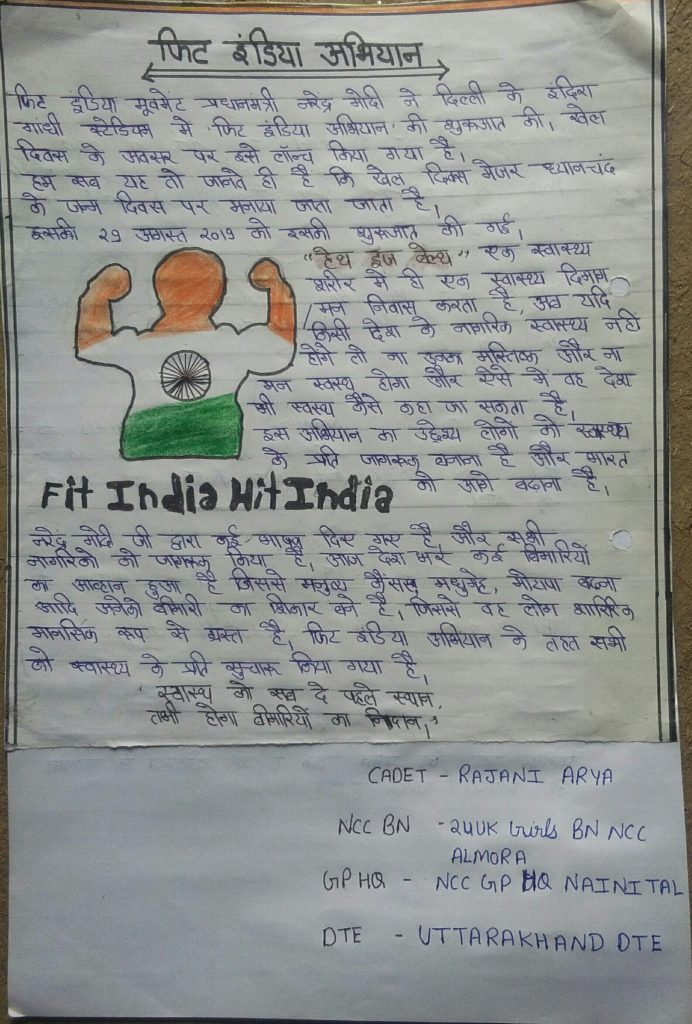 फिट इंडिया अभियान
फिट इंडिया मूवमेंट प्रधानमंत्री नरेंद्र मोदी ने दिल्ली के इंदिरा
गांधी स्टेडियम मे 'फिट इंडिया अभियान' की शुरूआत की, खेल
दिवस के अवसर पर इसे लॉन्च किया गया है,
हम सब यह तो जानते ही है कि खेल दिवस मेजर ध्यानचंद
के जन्म दिवस पर मनाया जाता जाता है,
इसकी 29 अगस्त 2019 को इसकी शुरूआत की गई,
"हेल्थ इज वेल्थ" एक स्वास्थ्य
शरीर मे ही एक स्वास्थ्य दिमाग
/मन निवास करता है, अब यदि
किसी देश के नागरिक स्वास्थ्य नही
होगे तो ना उनका मस्तिष्क और ना
मन स्वस्थ होगा और ऐसे मे वह देश
भी स्वस्थ कैसे कहा जा सकता है,
इस अभियान का उद्देश्य लोगों को स्वास्थ्य
के प्रति जागरूक बनाना है और भारत
को आगे बढाना है,
Fit India Hit India
नरेंद्र मोदी जी द्वारा कई भाषण दिए गए है, और सभी
नागरिको को जागरूक किया है, आज देश भर कई बिमारियों
का आव्हान हुआ है जिससे मनुष्य मधुमेह, मोटापा बढना
आदि अनेको बीमारी का शिकार बने है, जिससे वह लोग शारिरिक
मानसिक रूप से ग्रस्त है, फिट इंडिया अभियान के तहत सभी
को स्वास्थ्य के प्रति सुचारू किया गया है,
'स्वास्थ्य को सब दे पहले स्थान,
तभी होगा बीमारियों का निदान,'
CADET - RAJANI ARYA
NCC BN - 24UK Girls BN NCC
ALMORA
GP HQ - NCC GP HQ NAINITAL
DTE - UTTARAKHAND DTE